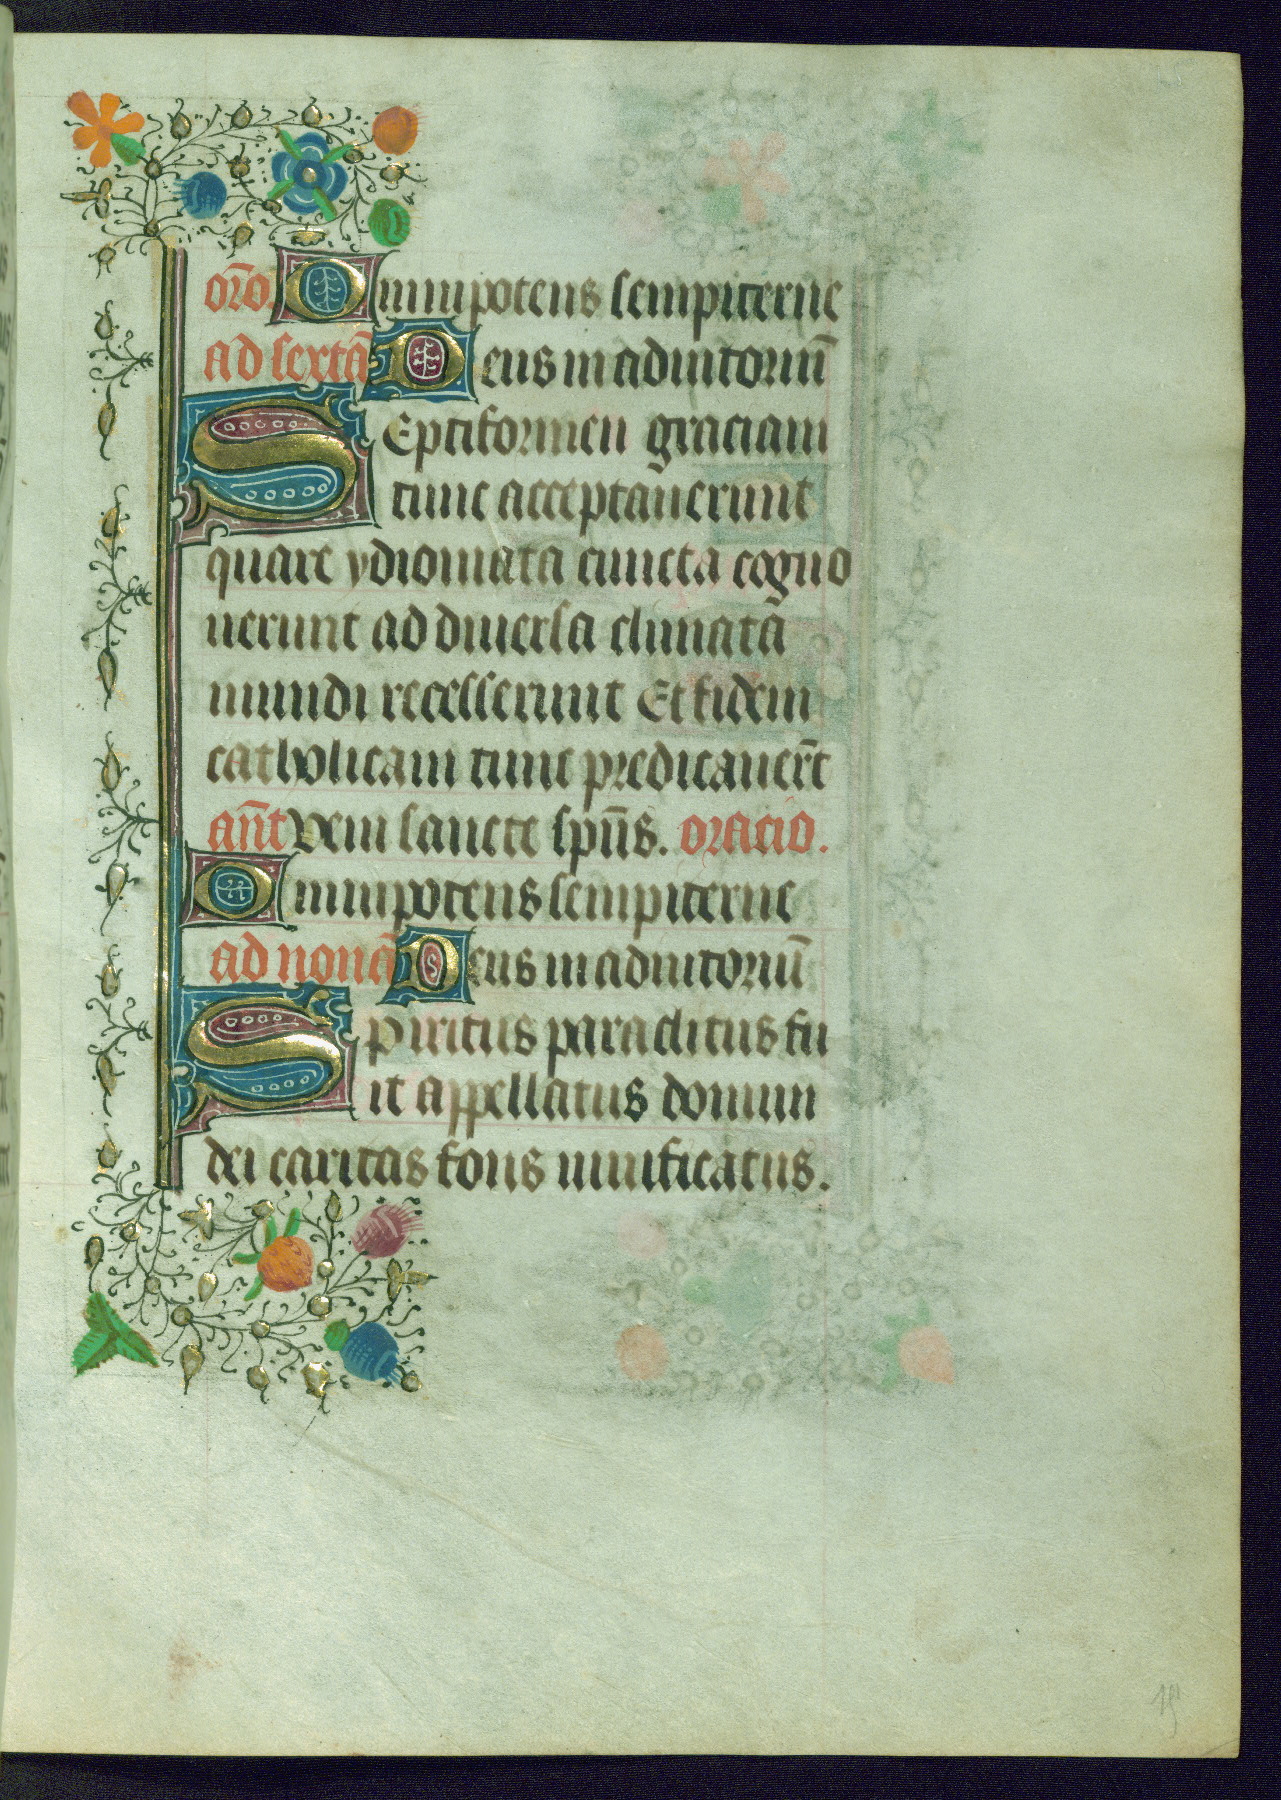 orō. Omnipotens sempiterne
ad sextā Deus in adiutoriū
Septiformem graciam
tunc acceptauerunt
quare ydiomata cuncta cogno
uerunt ad diuersa climata
mundi recesserunt Et fidem
catholicam tunc predicauerūt
ant̄ Veni sancte spūs. oracio.
Omnipotens sempiterne
ad nonā Deus in adiutoriū
Spiritus paraclitus fu
it appellatus donum
dei caritas fons uiuificatus.
15